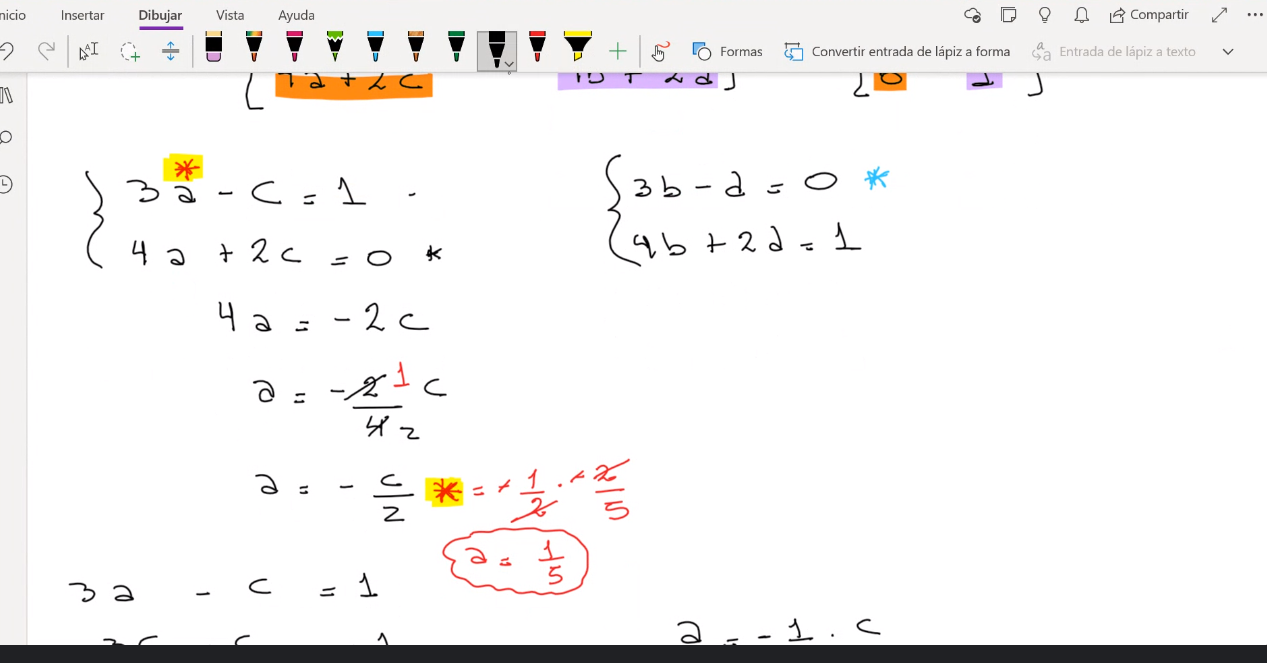 nicio Insertar Dibujar Vista Ayuda Compartir
Formas Convertir entrada de lápiz a forma Entrada de lápiz a texto
4a + 2c 4b + 2d 0 1
3a - c = 1
4a + 2c = 0 *
4a = -2c
a = -2/4 1/2 c
a = - c/2 * = -1/2 . -2/5
a = 1/5
3a - c = 1
3b - d = 0 *
4b + 2d = 1
a = -1 . c